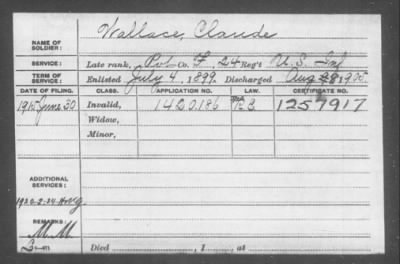 NAME OF SOLDIER: Wallace, Claude
SERVICE: Late rank, Pvt Co. F, 24 Reg't U.S. Inf
TERM OF SERVICE: Enlisted July 4, 1899, Discharged Aug 1905
DATE OF FILING. CLASS. APPLICATION NO. LAW. CERTIFICATE NO.
1915 June 30 Invalid, 1420186 1257917
Widow,
Minor,
ADDITIONAL SERVICES:
REMARKS:
Died , 1 , at